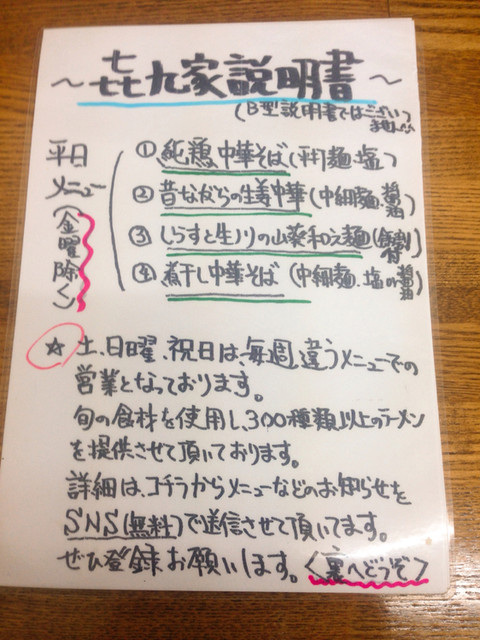 ～㐂九家説明書～
(B型説明書ではございませんっ)
平日メニュー(金曜除く)
① 純鶏中華そば(細麺・塩)
② 昔ながらの生姜中華(中細麺・醤油)
③ しらすと生ノリの山葵和え麺(割付)
④ 煮干し中華そば(中細麺・塩or醤油)
☆ 土、日曜、祝日は、毎週違うメニューでの
営業となっております。
旬の食材を使用し、300種類以上のラーメン
を提供させて頂いております。
詳細は、コチラからメニューなどのお知らせを
SNS(無料)で送信させて頂いてます。
ぜひ登録お願いします。<裏へどうぞ>